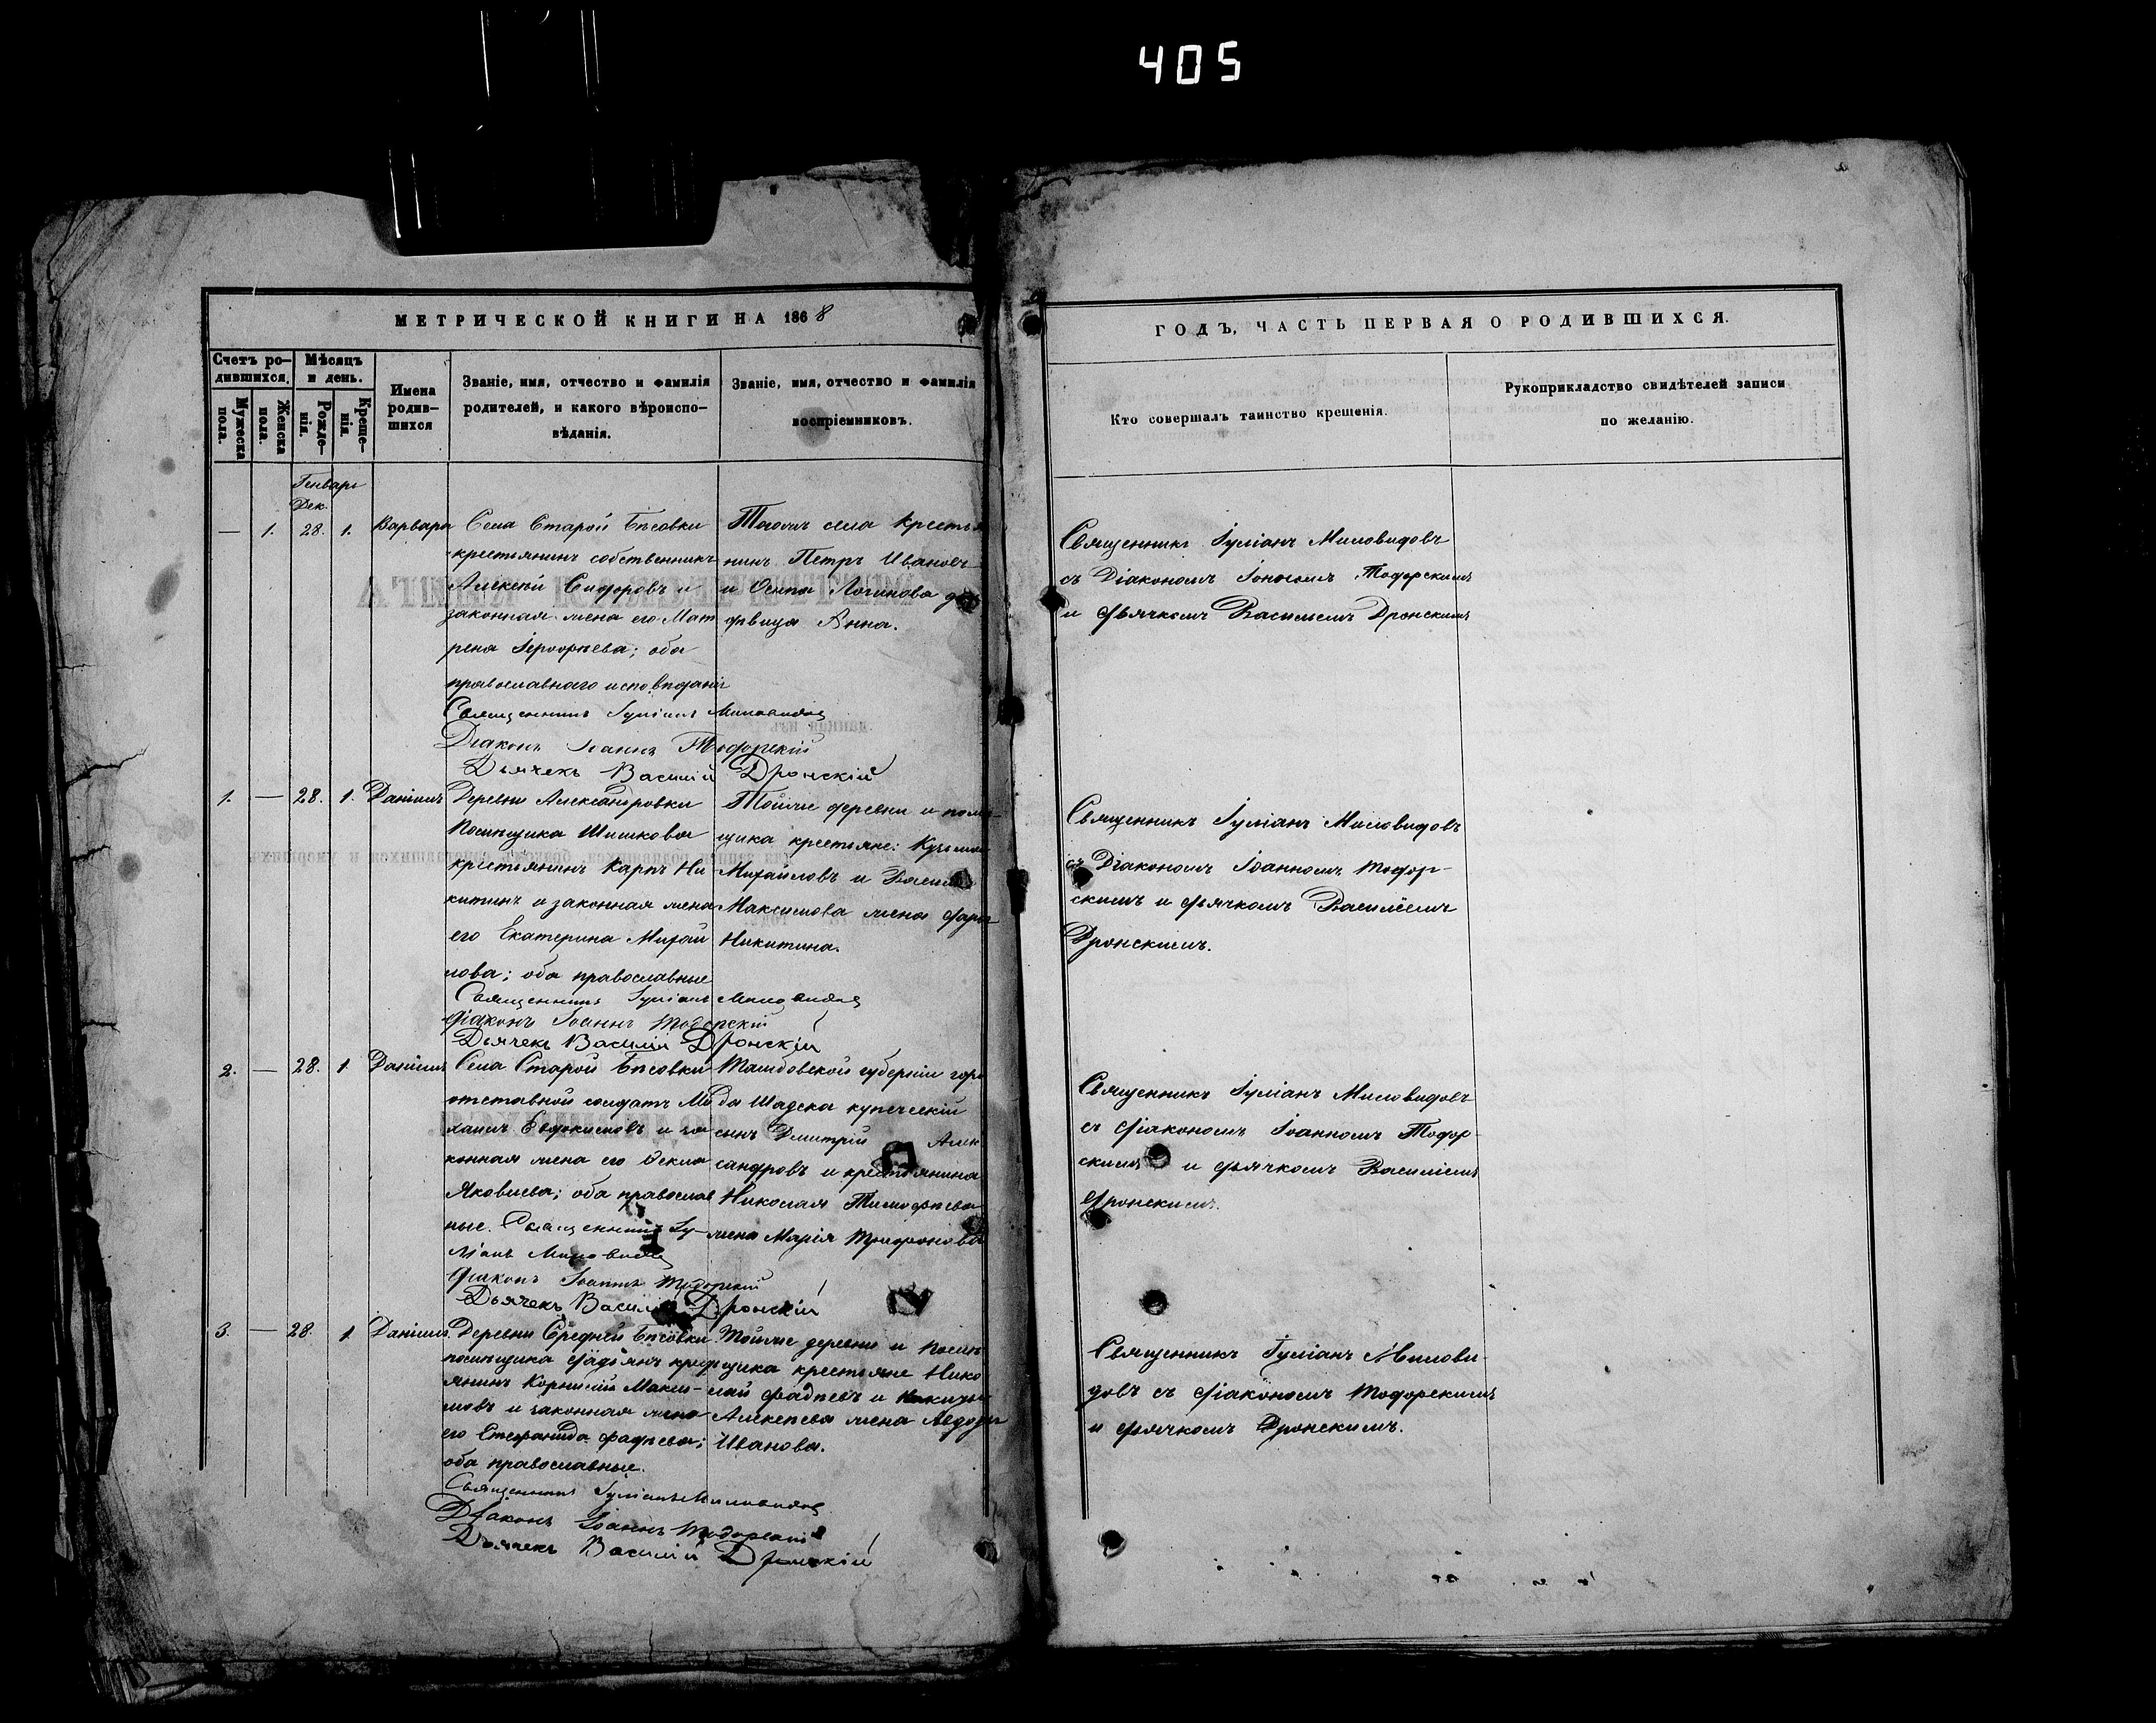 405
МЕТРИЧЕСКОЙ КНИГИ НА 1868
ГОДЪ, ЧАСТЬ ПЕРВАЯ О РОДИВШИХСЯ.
Счетъ ро-
дившихся.
Мужеска
пола.
Женска
пола.
Мѣсяцъ
и день.
Рожде-
нія.
Креще-
нія.
Имена
родив-
шихся
Званіе, имя, отчество и фамилія
родителей, и какого вѣроиспо-
вѣданія.
Званіе, имя, отчество и фамилія
воспріемниковъ.
Кто совершалъ таинство крещенія.
Рукоприкладство свидѣтелей записи
по желанію.
Генварь
Дек.
— 1. 28. 1. Варвара
Села Старой Бѣсовки
крестьянинъ собственникъ
Алексѣй Сидоровъ и
законная жена его Мат
рена оба
православнаго исповѣданія
Священникъ Іуліанъ Миловидовъ
Діаконъ Іоаннъ Тодорскій
Дьячекъ Василій Дронскій
села крестья
нинъ Петръ Ивановъ
и Осипа Логинова
дѣвица Анна.
Священникъ Іуліанъ Миловидовъ
съ Діакономъ Тодорскимъ
и дьячкомъ Василіемъ Дронскимъ
1. — 28. 1. Даніилъ
Деревни Александровки
помѣщика Шишкова
крестьянинъ Карпъ Ни
китинъ и законная жена
его Екатерина Михай
лова; оба православные
Священникъ Іуліанъ Миловидовъ
Діаконъ Іоаннъ Тодорскій
Дьячекъ Василій Дронскій
Тойже деревни и помѣ
щика крестьяне: Кузьма
Михайловъ и
Максимова жена
Никитина.
Священникъ Іуліанъ Миловидовъ
съ Діакономъ Іоанномъ Тодор-
скимъ и дьячкомъ Василіемъ
Дронскимъ.
2. — 28. 1. Даніилъ
Села Старой Бѣсовки
отставной солдатъ Ми
хаилъ Евдокимовъ и за
конная жена его Фекла
Яковлева; оба православ
ные. Священникъ Іу-
ліанъ Миловидовъ
Діаконъ Іоаннъ Тодорскій
Дьячекъ Василій Дронскій
Тамбовской губерніи горо
да Шацка купеческій
сынъ Дмитрій Алек
сандровъ и крестьянина
Николая Тимофѣева
жена Марія Трифонова
Священникъ Іуліанъ Миловидовъ
съ Діакономъ Іоанномъ Тодор-
скимъ и дьячкомъ Василіемъ
Дронскимъ.
3. — 28. 1. Даніилъ
Деревни Средней Бѣсовки
помѣщика
янинъ Корнилій Макси-
мовъ и законная жена
его Степанида Фадѣева;
оба православные.
Священникъ Іуліанъ Миловидовъ
Діаконъ Іоаннъ Тодорскій
Дьячекъ Василій Дронскій
Тойже деревни и помѣ
щика крестьяне Нико
лай Фадѣевъ и
Алексѣева жена
Иванова.
Священникъ Іуліанъ Милови-
довъ съ Діакономъ Тодорскимъ
и дьячкомъ Дронскимъ.